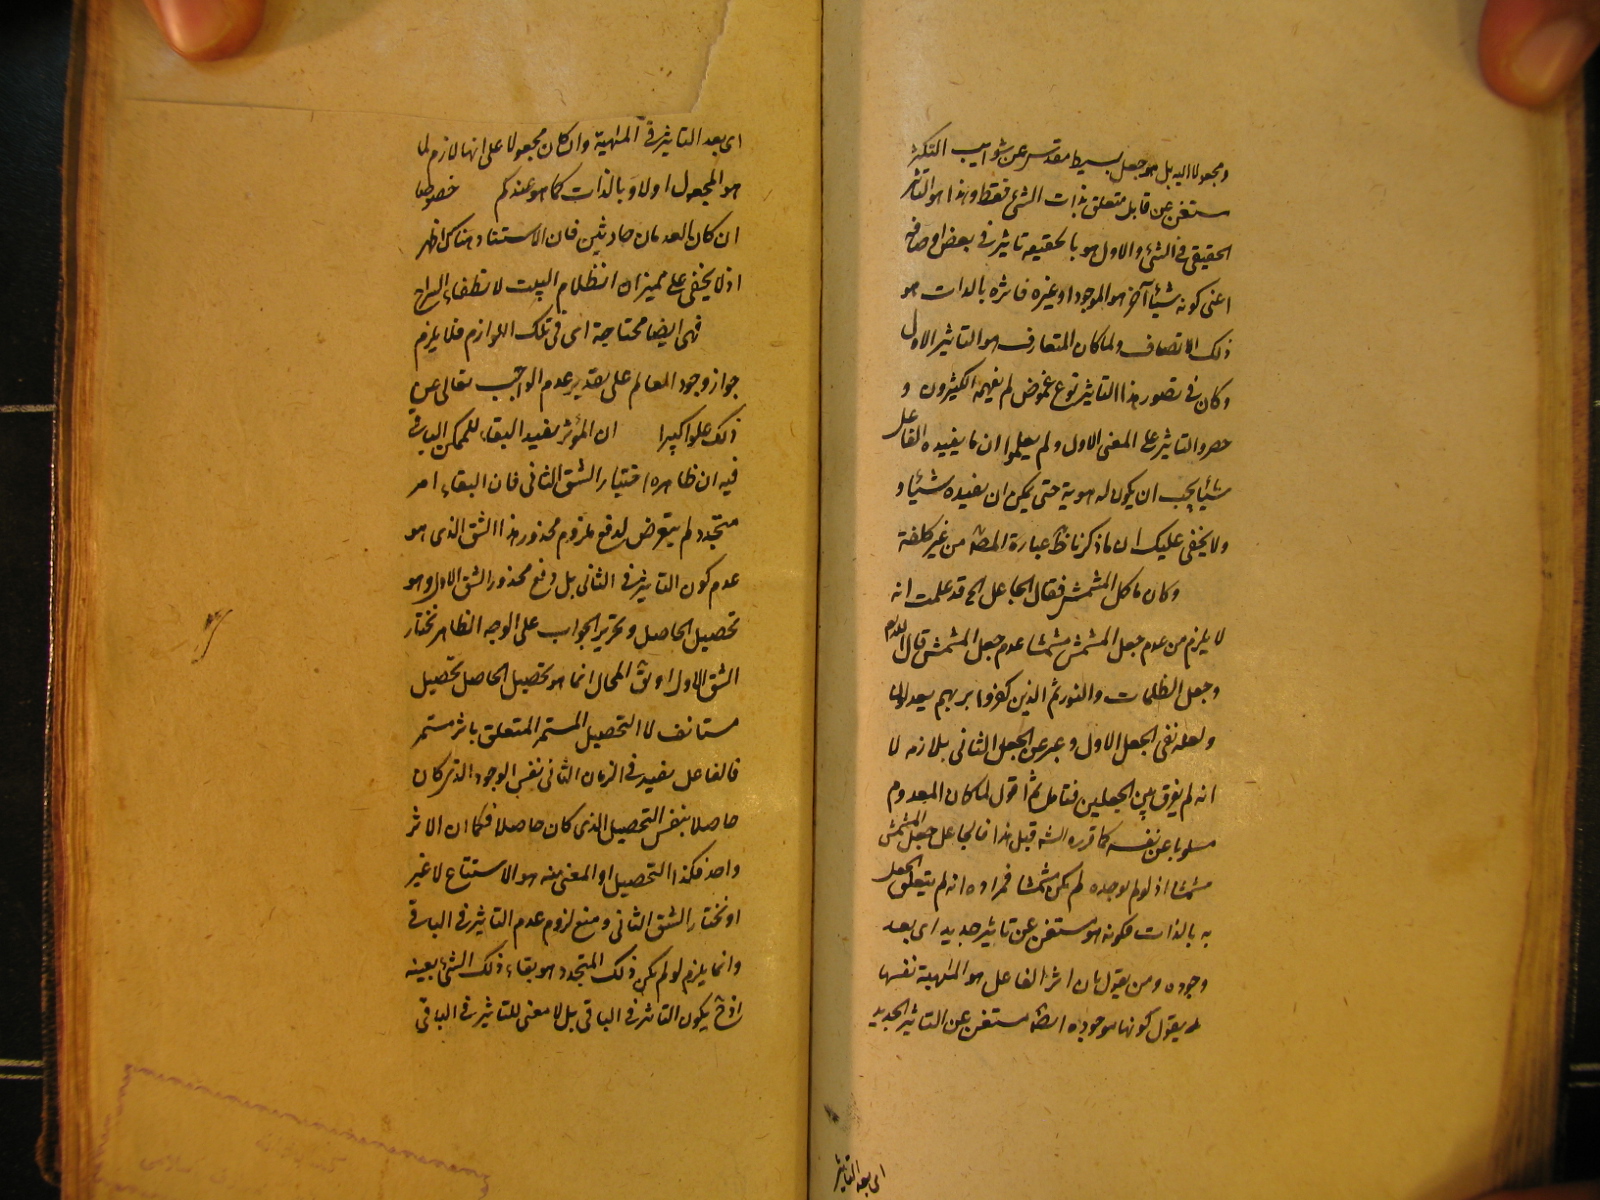 ومجعولا اليه بل هو جعل بسيط مقدس عن شوايب التكثر
مستغن عن قابل متعلق بذات الشئ فقط وهذا هو التاثير
الحقيقي في الشئ والاول هو بالحقيقة تاثير في بعض اوصافه
اعنى كونه شيأ آخر هو الموجود او غيره فاثره بالذات هو
ذلك الاتصاف ولما كان المتعارف هو التاثير الاول
وكان في تصور هذا التاثير نوع غموض لم يفهمه الكثيرون و
حصروا التاثير على المعنى الاول ولم يعلموا ان ما يفيده الفاعل
شيأ يجب ان يكون له هوية حتى يمكن ان يفيده شيأ و
ولا يخفى عليك ان ما ذكرنا ظ عبارة المص من غير كلفة
وكان ما كل المشمش فقال الجاعل الخ قد علمت انه
لا يلزم من عدم جعل المشمش مشمشا عدم جعل المشمش قال الله تع
وجعل الظلمات والنور ثم الذين كفروا بربهم يعدلون
ولعله نفى الجعل الاول وعبر عن الجعل الثانى بلازمه لا
انه لم يفرق بين الجعلين فتامل ثم اقول لما كان المعدوم
مسلوبا عن نفسه كما قرره الش قبل هذا فالجاعل جعل المشمش
مشمشا اذ لو لم يوجده لم يكن مشمشا فمراده انه لم يتعلق الجعل
به بالذات فكونه هو مستغن عن تاثير جديد اى بعد
وجوده ومن يقول بان اثر الفاعل هو الماهية نفسها
يقول كونها موجودة ايضا مستغن عن التاثير الجديد
اى بعد التاثير
اى بعد التاثير في الماهية وان كان مجعولا على انها لازم لما
هو المجعول اولا وبالذات كما هو عندكم خصوصا
ان كان العدمان حادثين فان الاستناد هناك اظهر
اذ لا يخفى على مميز ان انظلام البيت لانطفاء السراج
فهى ايضا محتاجة اى في تلك اللوازم فلا يلزم
جواز وجود العالم على تقدير عدم الواجب تعالى عن
ذلك علوا كبيرا ان المؤثر يفيد البقاء للممكن الباقى
فيه ان ظاهره اختيار الشق الثانى فان البقاء امر
متجدد لم يتعرض لدفع لزوم محذور هذا الشق الذى هو
عدم كون التاثير في الثانى بل دفع محذور الشق الاول وهو
تحصيل الحاصل وتحرير الجواب على الوجه الظاهر نختار
الشق الاول او نق المحال انما هو تحصيل الحاصل تحصيل
مستانف لا التحصيل المستمر المتعلق باثر مستمر
فالفاعل يفيد في الزمان الثانى نفس الوجود الذى كان
حاصلا بنفس التحصيل الذى كان حاصلا فكما ان الاثر
واحد فكذا التحصيل او المعنى منه هو الاستتباع لا غير
او نختار الشق الثانى ومنع لزوم عدم التاثير في الباقى
وانما يلزم لو لم يكن ذلك المتجدد هو بقاء ذلك الشئ بعينه
اذ ح يكون التاثير في الباقى بل لا معنى للتاثير في الباقى